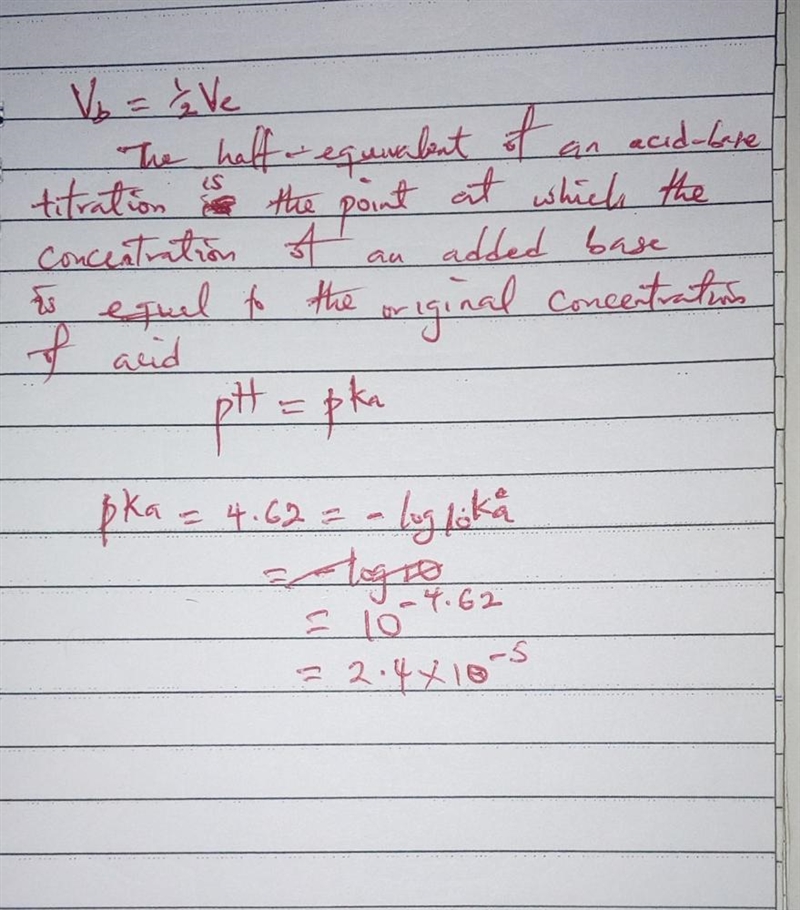 Vb = ½Ve
The half-equivalent of an acid-base
titration is the point at which the
concentration of an added base
is equal to the original concentration
of acid
pH = pka
pka = 4.62 = -log10ka
= -log10
= 10^-4.62
= 2.4×10^-5